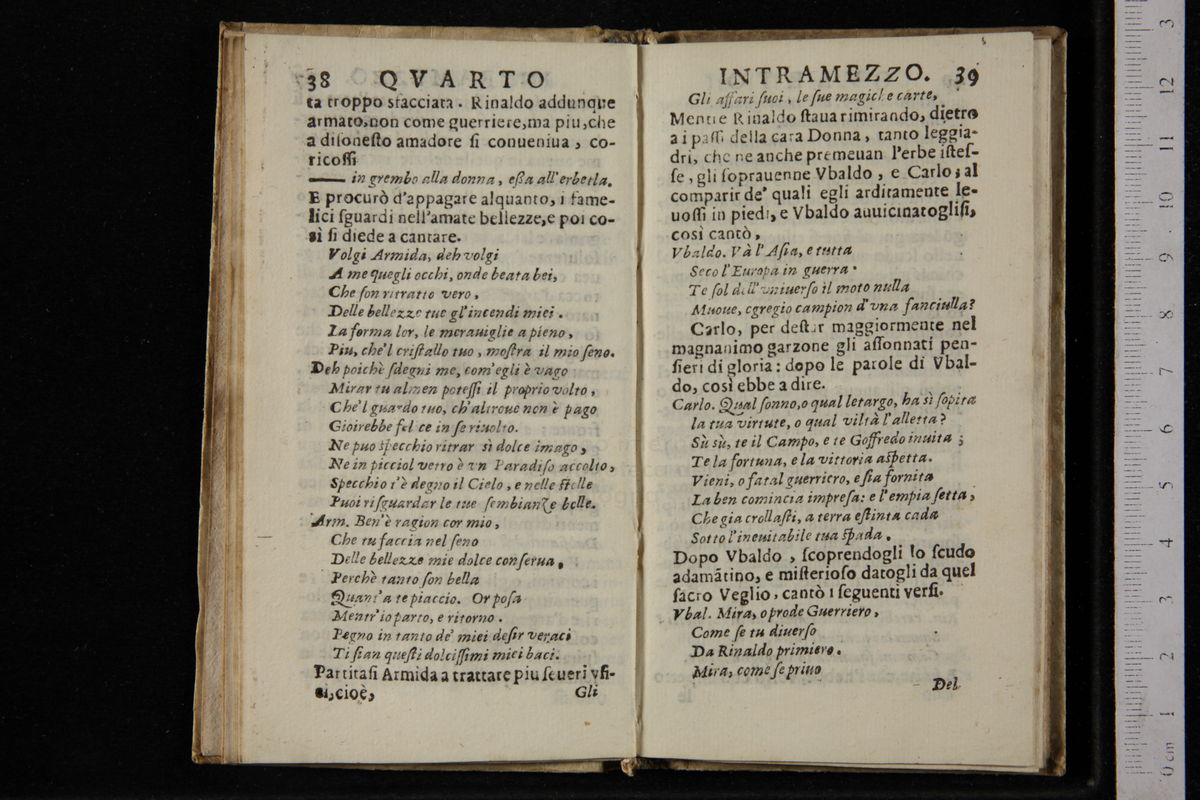 38 QVARTO
ta troppo sfacciata. Rinaldo addunque
armato, non come guerriere, ma piu, che
a disonesto amadore si conueniua, co-
ricossi
—— in grembo alla donna, essa all'erbetta.
E procurò d'appagare alquanto, i fame-
lici sguardi nell'amate bellezze, e poi co-
sì si diede a cantare.
Volgi Armida, deh volgi
A me quegli occhi, onde beata bei,
Che son ritratto vero,
Delle bellezze tue gl'incendi miei.
La forma lor, le merauiglie a pieno,
Piu, che'l cristallo tuo, mostra il mio seno.
Deh poichè sdegni me, com'egli è vago
Mirar tu almen potessi il proprio volto,
Che'l guardo tuo, ch'altroue non è pago
Gioirebbe felice in se riuolto.
Ne puo specchio ritrar sì dolce imago,
Ne in picciol vetro è vn Paradiso accolto,
Specchio t'è degno il Cielo, e nelle stelle
Puoi risguardar le tue sembianze belle.
Arm. Ben'è ragion cor mio,
Che tu faccia nel seno
Delle bellezze mie dolce conserua,
Perchè tanto son bella
Quant'a te piaccio. Or posa
Mentr'io parto, e ritorno.
Pegno in tanto de' miei desir veraci
Ti sian questi dolcissimi miei baci.
Partitasi Armida a trattare piu seueri vfi-
zi, cioè,
Gli
INTRAMEZZO. 39
Gli affari suoi, le sue magiche carte,
Mentre Rinaldo staua rimirando, dietro
a i passi della cara Donna, tanto leggia-
dri, che ne anche premeuan l'erbe istes-
se, gli soprauenne Vbaldo, e Carlo; al
comparir de' quali egli arditamente le-
uossi in piedi, e Vbaldo auuicinatoglisi,
così cantò,
Vbaldo. Và l'Asia, e tutta
Seco l'Europa in guerra.
Te sol dell'vniuerso il moto nulla
Muoue, egregio campion d'vna fanciulla?
Carlo, per destar maggiormente nel
magnanimo garzone gli assonnati pen-
sieri di gloria: dopo le parole di Vbal-
do, così ebbe a dire.
Carlo. Qual sonno, o qual letargo, ha sì sopita
la tua virtute, o qual viltà l'alletta?
Sù sù, te il Campo, e te Goffredo inuita;
Te la fortuna, e la vittoria aspetta.
Vieni, o fatal guerriero, e sia fornita
La ben comincia impresa: e l'empia setta,
Che gia crollasti, a terra estinta cada
Sotto l'ineuitabile tua spada.
Dopo Vbaldo, scoprendogli lo scudo
adamãtino, e misterioso datogli da quel
sacro Veglio, cantò i seguenti versi.
Vbal. Mira, o prode Guerriero,
Come se tu diuerso
Da Rinaldo primiero.
Mira, come se priuo
Del